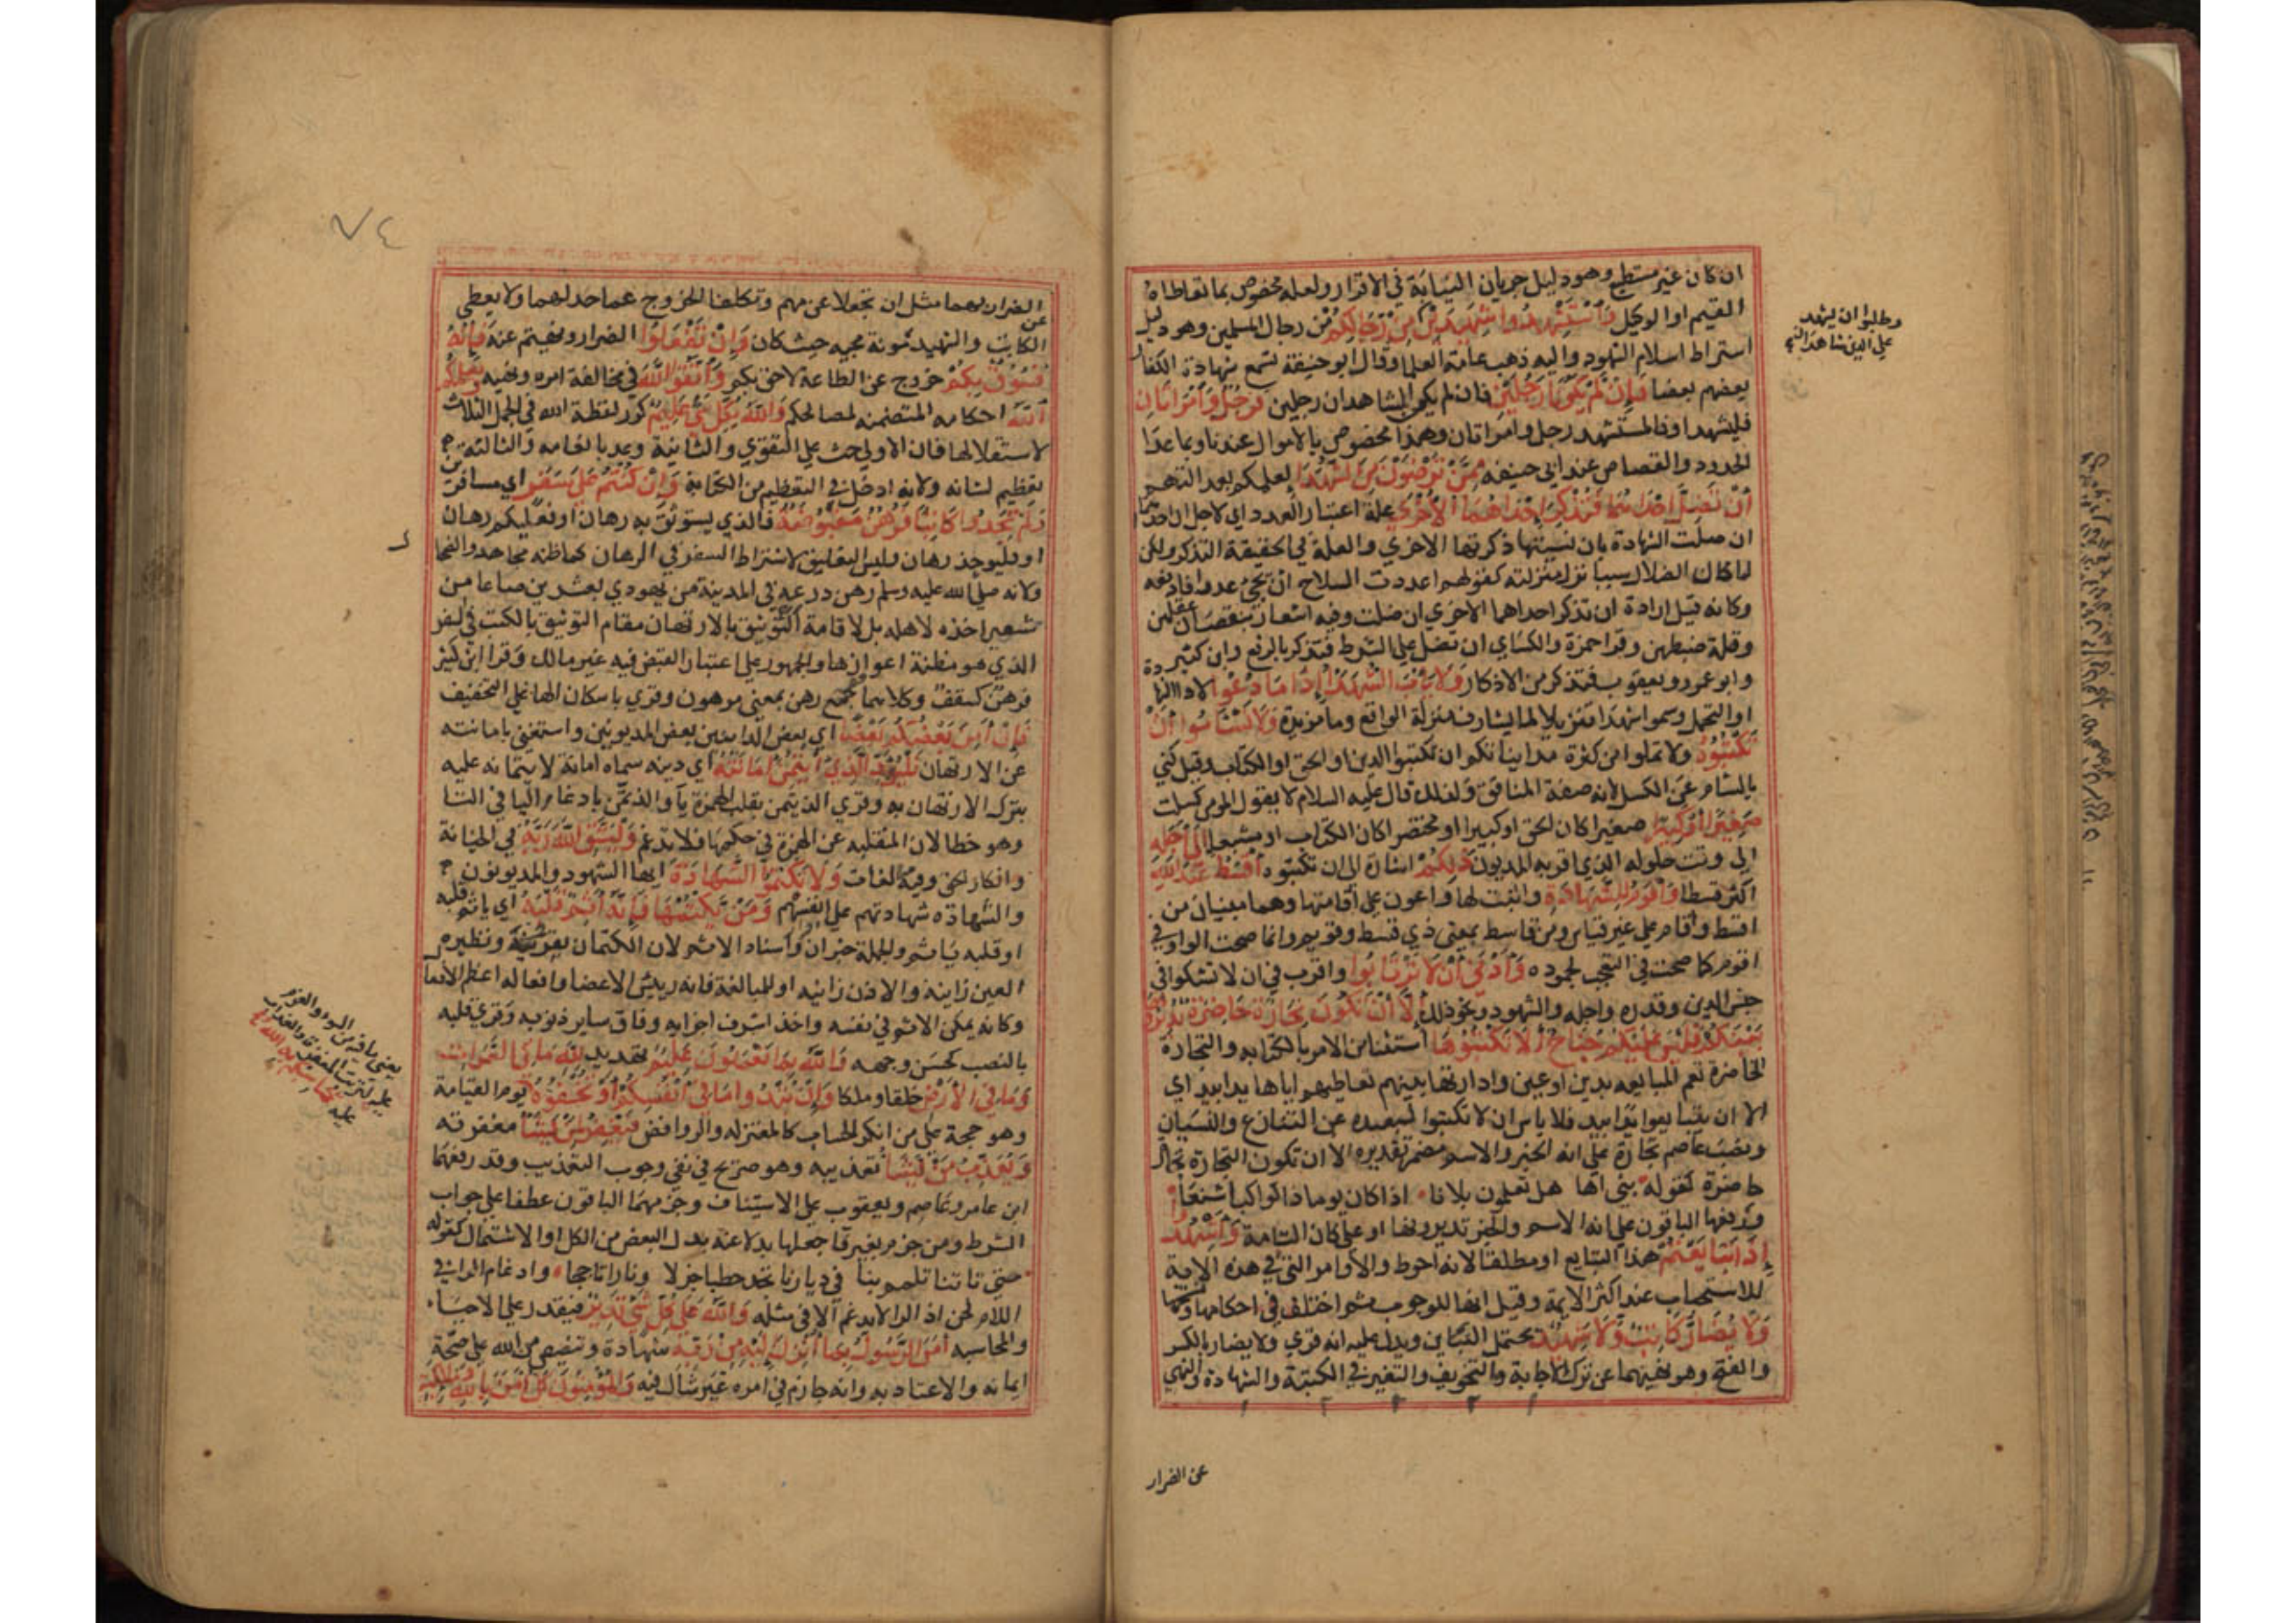 ان كان غير مستطيع وهو دليل جريان النيابة في الاقرار ولعله مخصوص بما تعاطاه
القيم او الوكيل وَاسْتَشْهِدُوا شَهِيدَيْنِ مِنْ رِجَالِكُمْ من رجال المسلمين وهو دليل
اشتراط اسلام الشهود واليه ذهب عامة العلما وقال ابو حنيفة تسمع شهادة الكفار
بعضهم بعضا فَإِنْ لَمْ يَكُونَا رَجُلَيْنِ فان لم يكن الشاهدان رجلين فَرَجُلٌ وَامْرَأَتَانِ
فليشهد او فالمستشهد رجل وامراتان وهذا مخصوص بالاموال عندنا وبما عدا
الحدود والقصاص عند ابي حنيفه مِمَّنْ تَرْضَوْنَ مِنَ الشُّهَدَا لعلمكم بعدالتهم
أَنْ تَضِلَّ إِحْدَاهُمَا فَتُذَكِّرَ إِحْدَاهُمَا الْأُخْرَى علة اعتبار العدد اي لاجل ان احدهما
ان ضلت الشهادة بان نسيتها ذكرتها الاخري والعلة في الحقيقة التذكر ولكن
لما كان الضلال سببا نزل منزلته كقولهم اعددت السلاح ان يجي عدو فادفعه
وكانه قيل ارادة ان تذكر احداهما الاخري ان ضلت وفيه اشعار بنقصان عقلهن
وقلة ضبطهن وقرا حمزة والكساي ان تضل علي الشرط فتذكر بالرفع وابن كثير
وابو عمرو ويعقوب فتذكر من الاذكار وَلَا يَأْبَ الشُّهَدَا إِذَا مَا دُعُوا لادا الشهادة
او التحمل وسموا شهدا تنزيلا لما يشارف منزلة الواقع وما مزيدة وَلَا تَسْأَمُوا أَنْ
تَكْتُبُوهُ ولا تملوا من كثرة مدايناتكم ان تكتبوا الدين او الحق او الكتاب وقيل كني
بالسام عن الكسل لانه صفة المنافق ولذلك قال عليه السلام لا يقول المومن كسلت
صَغِيرًا أَوْ كَبِيرًا صغيرا كان الحق او كبيرا او مختصرا كان الكتاب او مشبعا إِلَى أَجَلِهِ
الي وقت حلوله الذي اقر به المديون ذَلِكُمْ اشارة الي ان تكتبوه أَقْسَطُ عِنْدَ اللَّهِ
اكثر قسطا وَأَقْوَمُ لِلشَّهَادَةِ واثبت لها واعون علي اقامتها وهما مبنيان من
اقسط واقام علي غير قياس ومن قاسط بمعني ذي قسط وقويم وانما صحت الواو في
اقوم كما صحت في التعجب لجموده وَأَدْنَى أَنْ لَا تَرْتَابُوا واقرب في ان لا تشكوا في
جنس الدين وقدره واجله والشهود ونحو ذلك إِلَّا أَنْ تَكُونَ تِجَارَةً حَاضِرَةً تُدِيرُونَهَا
بَيْنَكُمْ فَلَيْسَ عَلَيْكُمْ جُنَاحٌ أَلَّا تَكْتُبُوهَا استثنا من الامر بالكتابه والتجارة
الحاضرة تعم المبايعه بدين او عين وادارتها بينهم تعاطيهم اياها يدا بيد اي
الا ان يتبايعوا يدا بيد فلا باس ان لا تكتبوا لبعده عن التنازع والنسيان
ونصب عاصم تجارة علي انه الخبر والاسم مضمر تقديره الا ان تكون التجارة تجارة
حاضرة كقوله بني اها هل تعلمون بلانا اذا كان يوما ذا كواكب اشنعا
ورفعها الباقون علي انه الاسم والخبر تديرونها او علي كان التامة وَأَشْهِدُوا
إِذَا تَبَايَعْتُمْ هذا التبايع او مطلقا لانه احوط والاوامر التي في هذه الاية
للاستحباب عند اكثر الايمة وقيل انها للوجوب ثم اختلف في احكامها ونسخها
وَلَا يُضَارَّ كَاتِبٌ وَلَا شَهِيدٌ يحتمل البناين ويدل عليه انه قري ولا يضار بالكسر
والفتح وهو نهيهما عن ترك الاجابة والتحريف والتغيير في الكتبة والشهادة والنهي
عن الضرار
وطلبوا ان يشهد
علي الدين شاهدان
٧٤
الضرار بهما مثل ان يعجلا عن مهم ويكلفا الخروج عما حد لهما ولا يعطي
الكاتب والشهيد مونة مجيه حيث كان وَإِنْ تَفْعَلُوا الضرار ونهيتم عنه فَإِنَّهُ
فُسُوقٌ بِكُمْ خروج عن الطاعة لاحق بكم وَاتَّقُوا اللَّهَ في مخالفة امره ونهيه وَيُعَلِّمُكُمُ
اللَّهُ احكامه المتضمنه لمصالحكم وَاللَّهُ بِكُلِّ شَيْءٍ عَلِيمٌ كرر لفظة الله في الجمل الثلاث
لاستقلالها فان الاولي حث علي التقوي والثانية وعد بانعامه والثالثة
تعظيم لشانه ولانه ادخل في التعظيم من الكناية وَإِنْ كُنْتُمْ عَلَى سَفَرٍ اي مسافرين
وَلَمْ تَجِدُوا كَاتِبًا فَرُهُنٌ مَقْبُوضَةٌ فالذي يستوثق به رهان او فعليكم رهان
او فليوخذ رهان وليس التعليق لاشتراط السفر في الرهان كما ظنه مجاهد والضحاك
ولانه صلي الله عليه وسلم رهن درعه في المدينة من يهودي بعشرين صاعا من
شعير اخذه لاهله بل لاقامة التوثيق بالارتهان مقام التوثيق بالكتب في السفر
الذي هو مظنة اعوازها والجمهور علي اعتبار القبض فيه غير مالك وقرا ابن كثير
فرهن كسقف وكلاهما جمع رهن بمعني مرهون وقري باسكان الها علي التخفيف
فَإِنْ أَمِنَ بَعْضُكُمْ بَعْضًا اي بعض الداينين بعض المديونين واستغني بامانته
عن الارتهان فَلْيُؤَدِّ الَّذِي اؤْتُمِنَ أَمَانَتَهُ اي دينه سماه امانة لايتمانه عليه
بترك الارتهان به وقري الذيتمن بقلب الهمزة يا والذتمن بادغام اليا في التا
وهو خطا لان المنقلبه عن الهمزة في حكمها فلا تدغم وَلْيَتَّقِ اللَّهَ رَبَّهُ في الخيانة
وانكار الحق وفيه مبالغات وَلَا تَكْتُمُوا الشَّهَادَةَ ايها الشهود والمديونون
والشهادة شهادتهم علي انفسهم وَمَنْ يَكْتُمْهَا فَإِنَّهُ آثِمٌ قَلْبُهُ اي ياثم قلبه
او قلبه ياثم والجملة خبر ان واسناد الاثم لان الكتمان يقترفه ونظيره
العين زانية والاذن زانيه او للمبالغة فانه رييس الاعضا وافعاله اعظم الافعال
وكانه يمكن الاثم في نفسه واخذ اشرف اجزايه وفاق ساير ذنوبه وقري قلبه
بالنصب كحسن وجهه وَاللَّهُ بِمَا تَعْمَلُونَ عَلِيمٌ تهديد لِلَّهِ مَا فِي السَّمَوَاتِ
وَمَا فِي الْأَرْضِ خلقا وملكا وَإِنْ تُبْدُوا مَا فِي أَنْفُسِكُمْ أَوْ تُخْفُوهُ يوم القيامة
وهو حجة علي من انكر الحساب كالمعتزله والروافض فَيَغْفِرُ لِمَنْ يَشَا مغفرته
وَيُعَذِّبُ مَنْ يَشَا تعذيبه وهو صريح في نفي وجوب التعذيب وقد رفعهما
ابن عامر وعاصم ويعقوب علي الاستيناف وجزمهما الباقون عطفا علي جواب
الشرط ومن جزم بغير فا جعلها بدلا عنه بدل البعض من الكل او الاشتمال كقوله
حتي تاتنا تلمم بنا في ديارنا تجد حطبا جزلا ونارا تاججا وادغام الرا في
اللام لحن اذ الرا لا يدغم الا في مثله وَاللَّهُ عَلَى كُلِّ شَيْءٍ قَدِيرٌ فيقدر علي الاحيا
والمحاسبه آمَنَ الرَّسُولُ بِمَا أُنْزِلَ إِلَيْهِ مِنْ رَبِّهِ شهادة وتنصيص من الله علي صحة
ايمانه والاعتداد به وانه جازم في امره غير شاك فيه وَالْمُؤْمِنُونَ كُلٌّ آمَنَ بِاللَّهِ وَمَلَائِكَتِهِ
يعني ما فيه من السوء والعزم
عليه لترتب المغفرة والعذاب
عليه